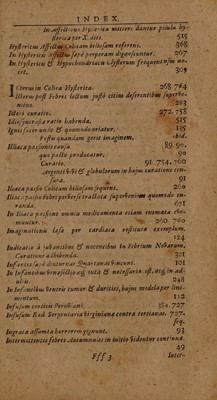 INDEX.
In affectione Hysterica mittere dantur pilula hysterica per X. dies. 515
Hystericus affectus Colicam biliosam referens. 368
In Hysteric: affectu sæpè perperam digeruntur. 267
In Hystericis & Hypochondriacis Clysterum frequens usus nocet. 309
Icterus in Colica Hysterica. 268. 764
Icterus post Febres lectum justò citiùs deserentibus superbe-
283
Icteri curatio. 272. 158
ratio habenda. 515
Ignis sacer unde & quomodo oriatur, 115
Pestis quandam gerit imaginem. ibid.
Iliaca passionis causa 89. 90.
quo pacto producatur, 90
Curatio. 91. 754. 760
Argenti vivi & globulorum in hujus curatione censura. 91
Iliaca passio Colicam biliosam sequens, 260
Iliaca passio Febri perverse tractata superveniens quomodo curanda. 671
In Iliaca passione omnia medicamenta etiam vomatu
260. 760
Imaginationis læsa per cardiaca restituta exemplum.
124
Indicatio à juvantibus & nocentibus in Febrium Novarum,
Curatione adhibenda. 221
Infantes sæpe diuturnas Quartanas ferunt. 101
In Infantibus venæsectio æquè tuta & necessaria est, atq; in adultis. 248
In Infantibus Ventris tumor & durities, hujus medela per linimentum. 112
Infusum corticis Peruviani 384. 727
Infusum Rad. Serpentariæ Virginianæ contra tertianas. 727.
seq.
Ingrata assumta horrorem gignunt. 93
Intermittentes febres Autumnales in initio videntur continuæ.
49
Fff 3 Inter-